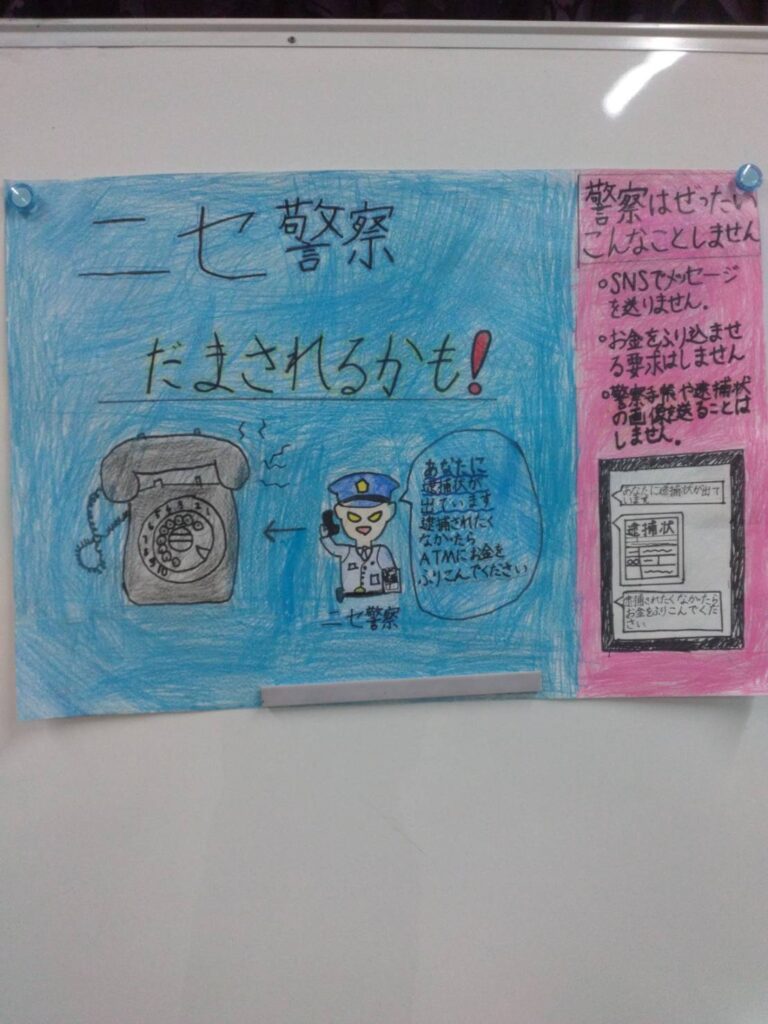 ニセ警察
だまされるかも!
あなたに
逮捕状が
出ています
逮捕されたく
なかったら
ATMにお金を
ふりこんでください
ニセ警察
警察はぜったい
こんなことしません
○SNSでメッセージ
を送りません。
○お金をふり込ませ
る要求はしません
○警察手帳や逮捕状
の画像を送ることは
しません。
あなたに逮捕状が出て
います
逮捕状
逮捕されたくなかったら
お金をふりこんでくだ
さい